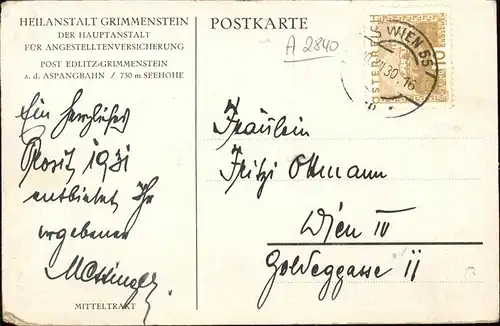 HEILANSTALT GRIMMENSTEIN
DER HAUPTANSTALT
FÜR ANGESTELLTENVERSICHERUNG
POST EDLITZ-GRIMMENSTEIN
a. d. ASPANGBAHN / 730 m SEEHÖHE
Ein herzliches
Prosit 1931
entbietet Ihr
ergebener
MITTELTRAKT
POSTKARTE
A 2840
ÖSTERREICH
WIEN 55
30. 16
Fräulein
Fritzi Ottmann
Wien IV
Goldeggasse 11